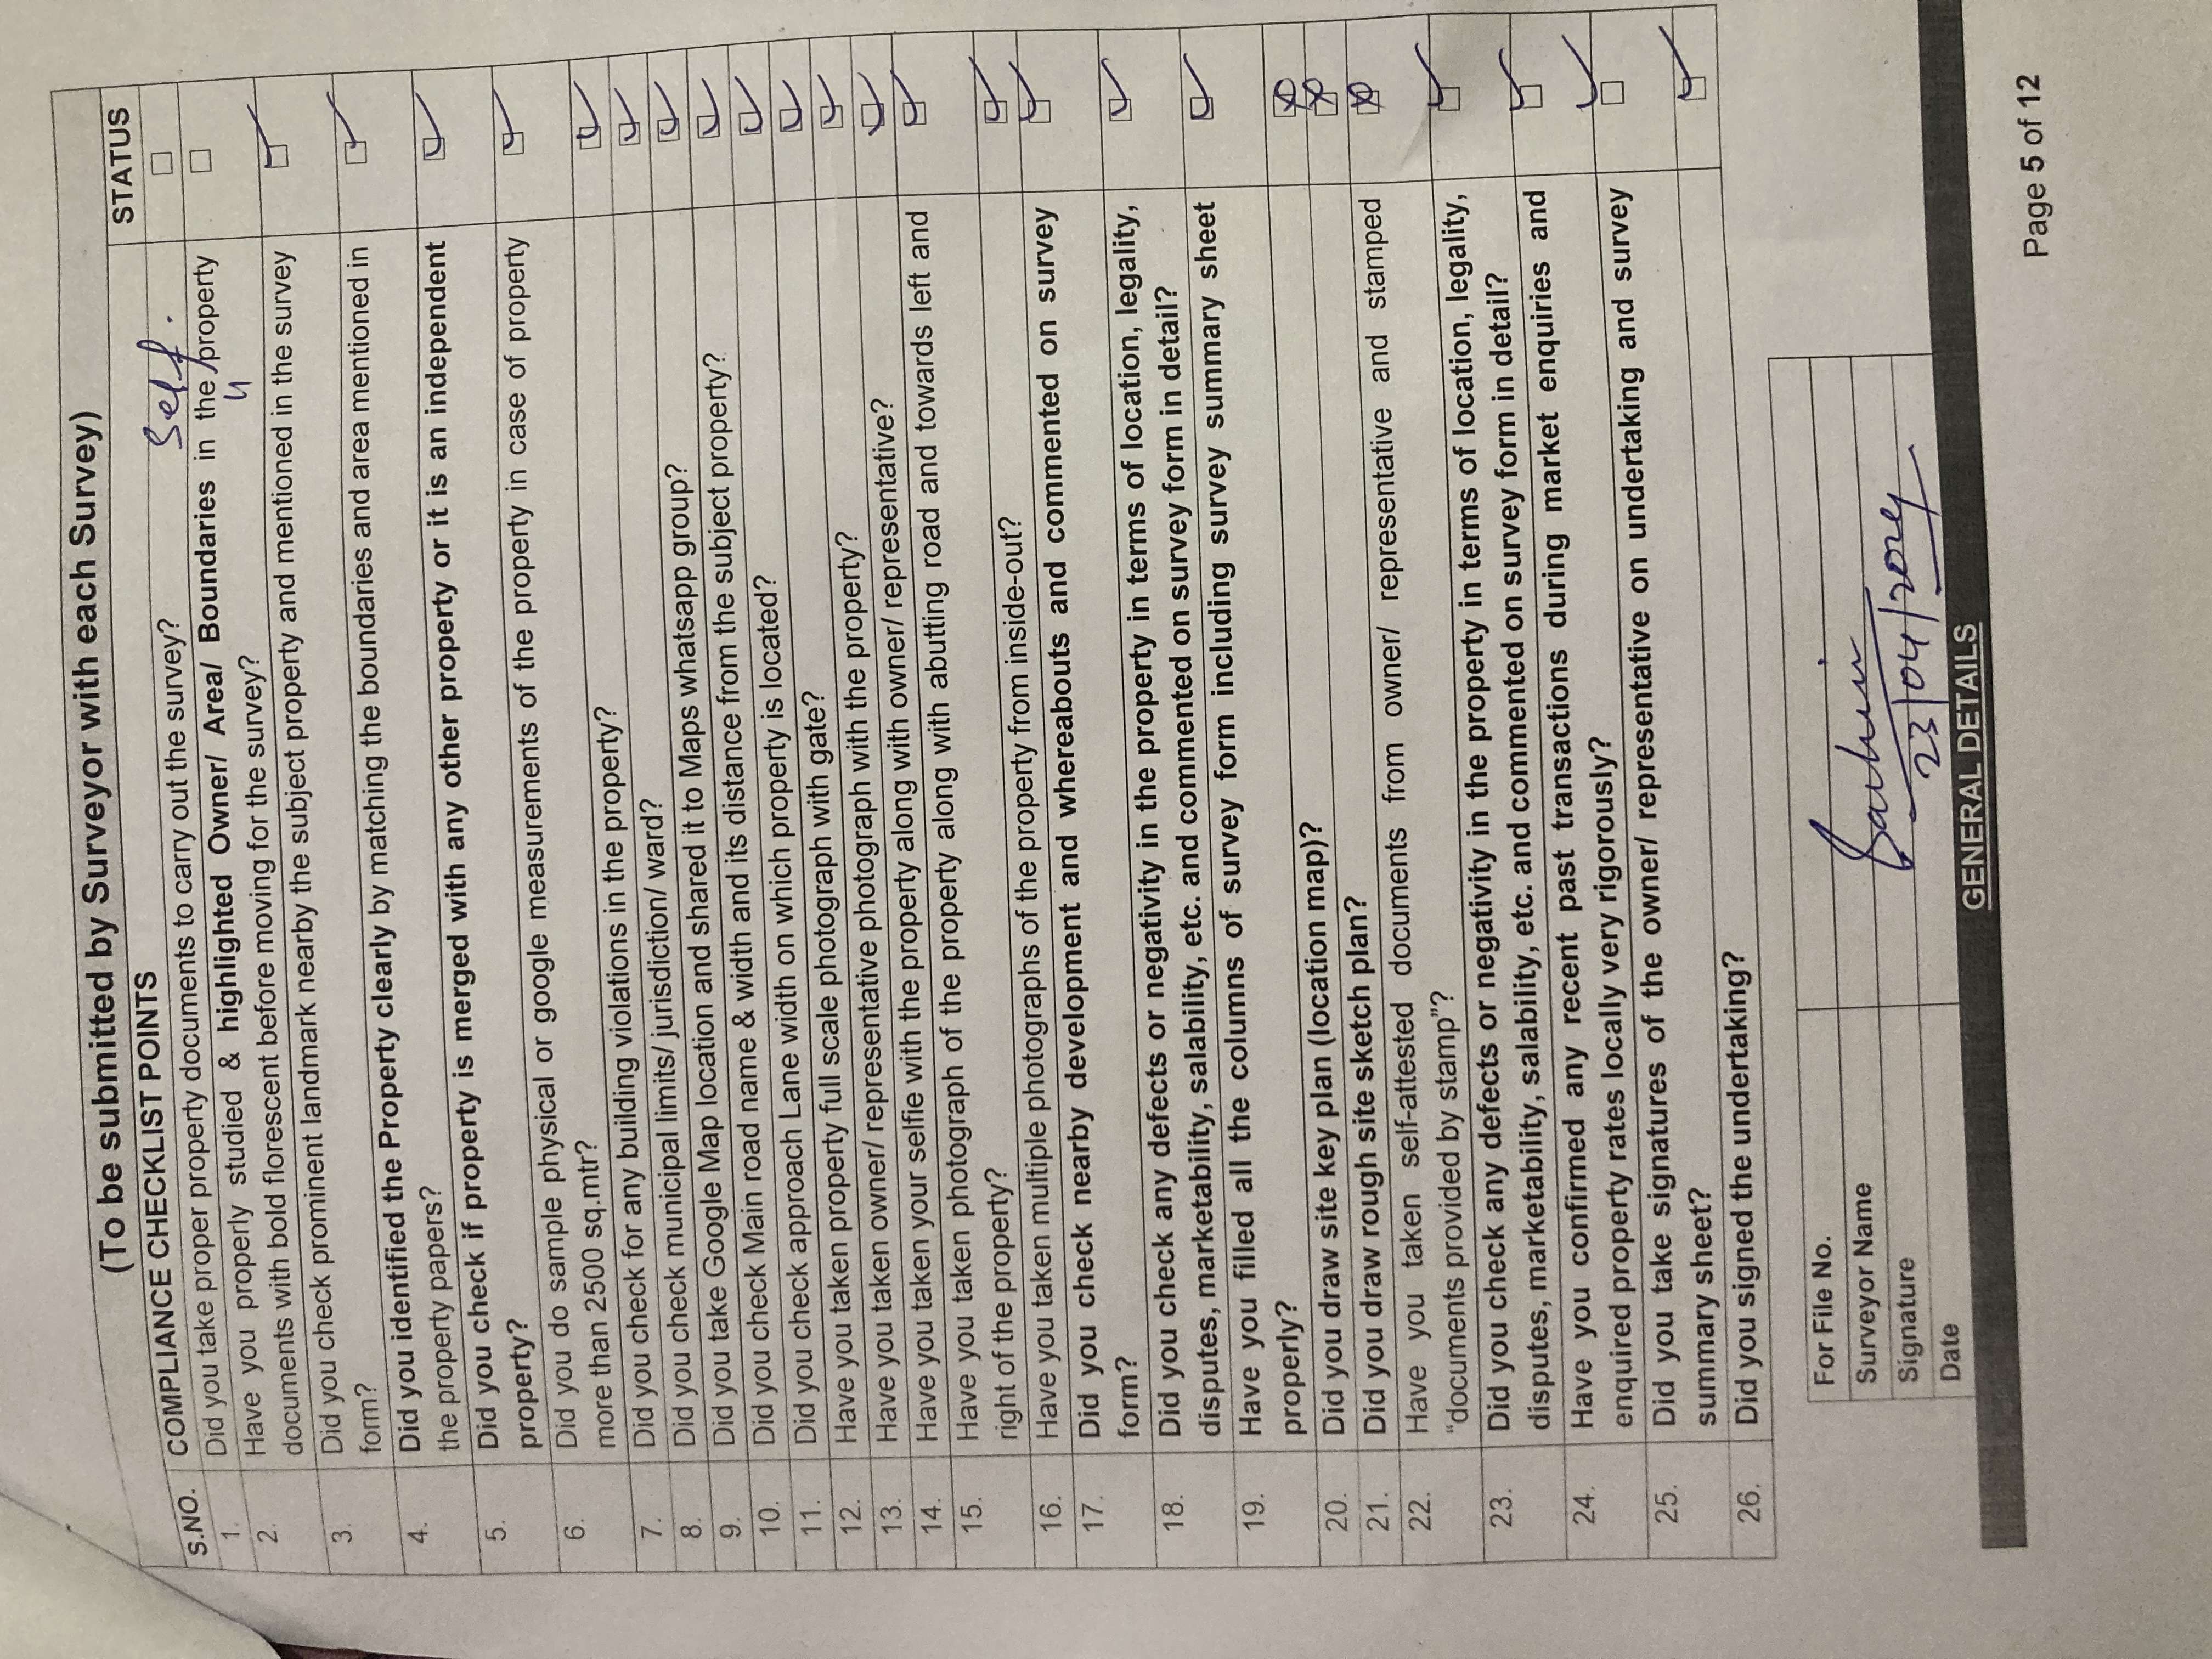 (To be submitted by Surveyor with each Survey)
S.NO. COMPLIANCE CHECKLIST POINTS STATUS
1. Did you take proper property documents to carry out the survey? Self. ☐
2. Have you properly studied & highlighted Owner/ Area/ Boundaries in the property ☐
documents with bold florescent before moving for the survey?
3. Did you check prominent landmark nearby the subject property and mentioned in the survey ☑
form?
4. Did you identified the Property clearly by matching the boundaries and area mentioned in ☑
the property papers?
5. Did you check if property is merged with any other property or it is an independent ☑
property?
6. Did you do sample physical or google measurements of the property in case of property ☑
more than 2500 sq.mtr?
7. Did you check for any building violations in the property? ☑
8. Did you check municipal limits/ jurisdiction/ ward? ☑
9. Did you take Google Map location and shared it to Maps whatsapp group? ☑
10. Did you check Main road name & width and its distance from the subject property? ☑
11. Did you check approach Lane width on which property is located? ☑
12. Have you taken property full scale photograph with gate? ☑
13. Have you taken owner/ representative photograph with the property? ☑
14. Have you taken your selfie with the property along with owner/ representative? ☑
15. Have you taken photograph of the property along with abutting road and towards left and ☑
right of the property?
16. Have you taken multiple photographs of the property from inside-out? ☑
17. Did you check nearby development and whereabouts and commented on survey ☑
form?
18. Did you check any defects or negativity in the property in terms of location, legality, ☑
disputes, marketability, salability, etc. and commented on survey form in detail?
19. Have you filled all the columns of survey form including survey summary sheet ☑
properly?
20. Did you draw site key plan (location map)? ☒
21. Did you draw rough site sketch plan? ☒
22. Have you taken self-attested documents from owner/ representative and stamped ☒
“documents provided by stamp”?
23. Did you check any defects or negativity in the property in terms of location, legality, ☑
disputes, marketability, salability, etc. and commented on survey form in detail?
24. Have you confirmed any recent past transactions during market enquiries and ☑
enquired property rates locally very rigorously?
25. Did you take signatures of the owner/ representative on undertaking and survey ☑
summary sheet?
26. Did you signed the undertaking? ☑
For File No.
Surveyor Name Sachin
Signature
Date 23/04/2024
GENERAL DETAILS
Page 5 of 12